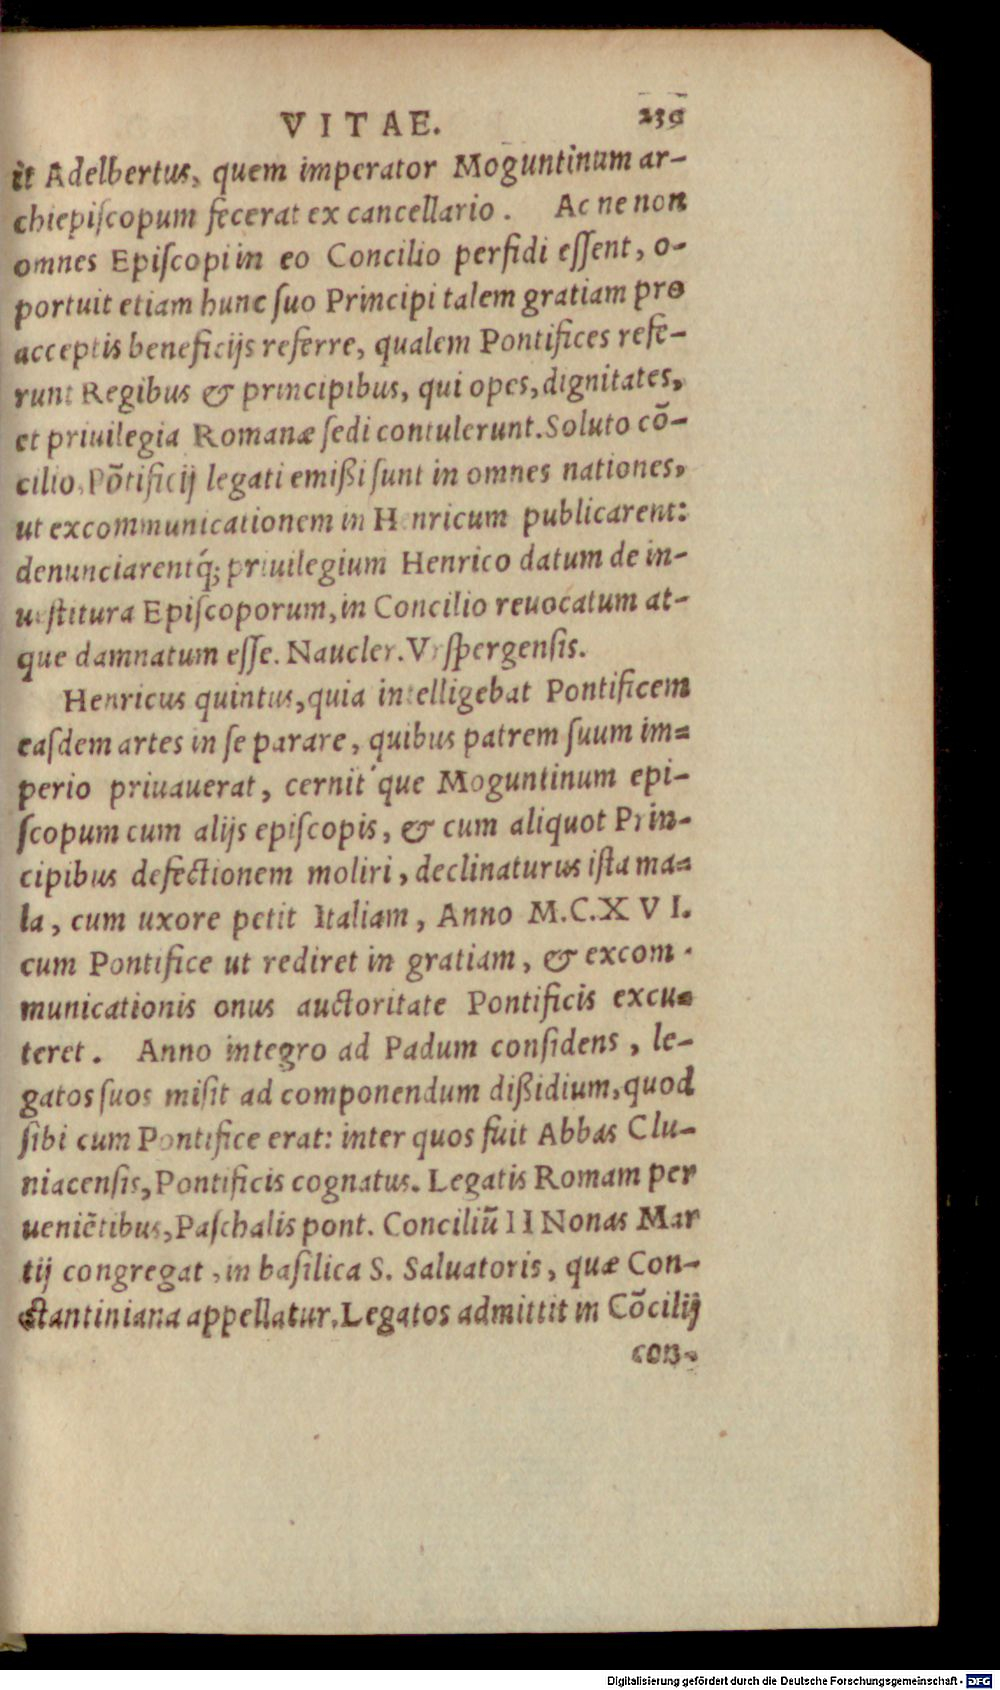 VITAE. 239
it Adelbertus, quem imperator Moguntinum ar-
chiepiſcopum fecerat ex cancellario. Ac ne non
omnes Epiſcopi in eo Concilio perfidi eſſent, o-
portuit etiam hunc ſuo Principi talem gratiam pro
acceptis beneficijs referre, qualem Pontifices refe-
runt Regibus & principibus, qui opes, dignitates,
et priuilegia Romanæ ſedi contulerunt. Soluto cō-
cilio, Pōtificij legati emißi ſunt in omnes nationes,
ut excommunicationem in Henricum publicarent:
denunciarentq́; priuilegium Henrico datum de in-
ueſtitura Epiſcoporum, in Concilio reuocatum at-
que damnatum eſſe. Naucler. Vrſpergenſis.
Henricus quintus, quia intelligebat Pontificem
eaſdem artes in ſe parare, quibus patrem ſuum im-
perio priuauerat, cernit́que Moguntinum epi-
ſcopum cum alijs epiſcopis, & cum aliquot Prin-
cipibus defectionem moliri, declinaturus iſta ma-
la, cum uxore petit Italiam, Anno M.C.XVI.
cum Pontifice ut rediret in gratiam, & excom-
municationis onus auctoritate Pontificis excu-
teret. Anno integro ad Padum conſidens, le-
gatos ſuos miſit ad componendum dißidium, quod
ſibi cum Pontifice erat: inter quos fuit Abbas Clu-
niacenſis, Pontificis cognatus. Legatis Romam per
ueniētibus, Paſchalis pont. Conciliū II Nonas Mar
tij congregat, in baſilica S. Saluatoris, quæ Con-
ſtantiniana appellatur. Legatos admittit in Cōcilij
con-
Digitalisierung gefördert durch die Deutsche Forschungsgemeinschaft - DFG